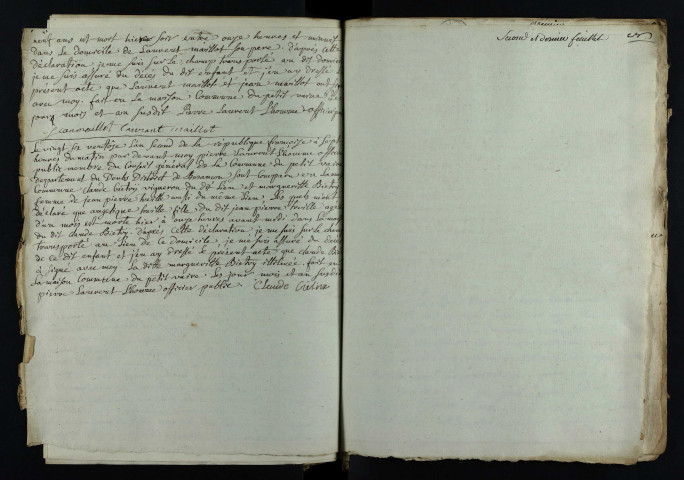 neuf ans est mort hier soir entre onze heures et minuit
dans le domicile de Laurent maillot son pere d'après cette
déclaration je me suis sur le champ transporté au dit domicile
je me suis assuré du décès du dit enfant et j'en ay dressé le
présent acte que Laurent maillot et jean maillot ont
avec moy. fait en la maison Commune du petit
jour mois et an susdit Pierre Laurent Lhomme officier
Laurant maillot
Le vingt six ventôse l'an second de la république françoise à sept
heures du matin par devant moy pierre Laurent Lhomme officier
public membre du Conseil général de la Commune du petit
département du Doubs District de Besançon sont comparu en la
Commune claude vigneron du dit Lieu et margueritte
femme de jean pierre aussi du même Lieu. Les quels m'ont
déclaré que angelique fille du dit jean pierre agée
d'un mois est morte hier à onze heures avant midi dans la maison
du dit Claude d'après cette déclaration je me suis sur le champ
transporté au Lieu de ce domicile, je me suis assuré du décès
de ce dit enfant et j'en ay dressé le présent acte que claude
à signé avec moy. La ditte margueritte illitérée. fait en
La maison Commune du petit Les jour mois et an susdit
pierre Laurent Lhomme officier public. Claude
Second et dernier feuillet